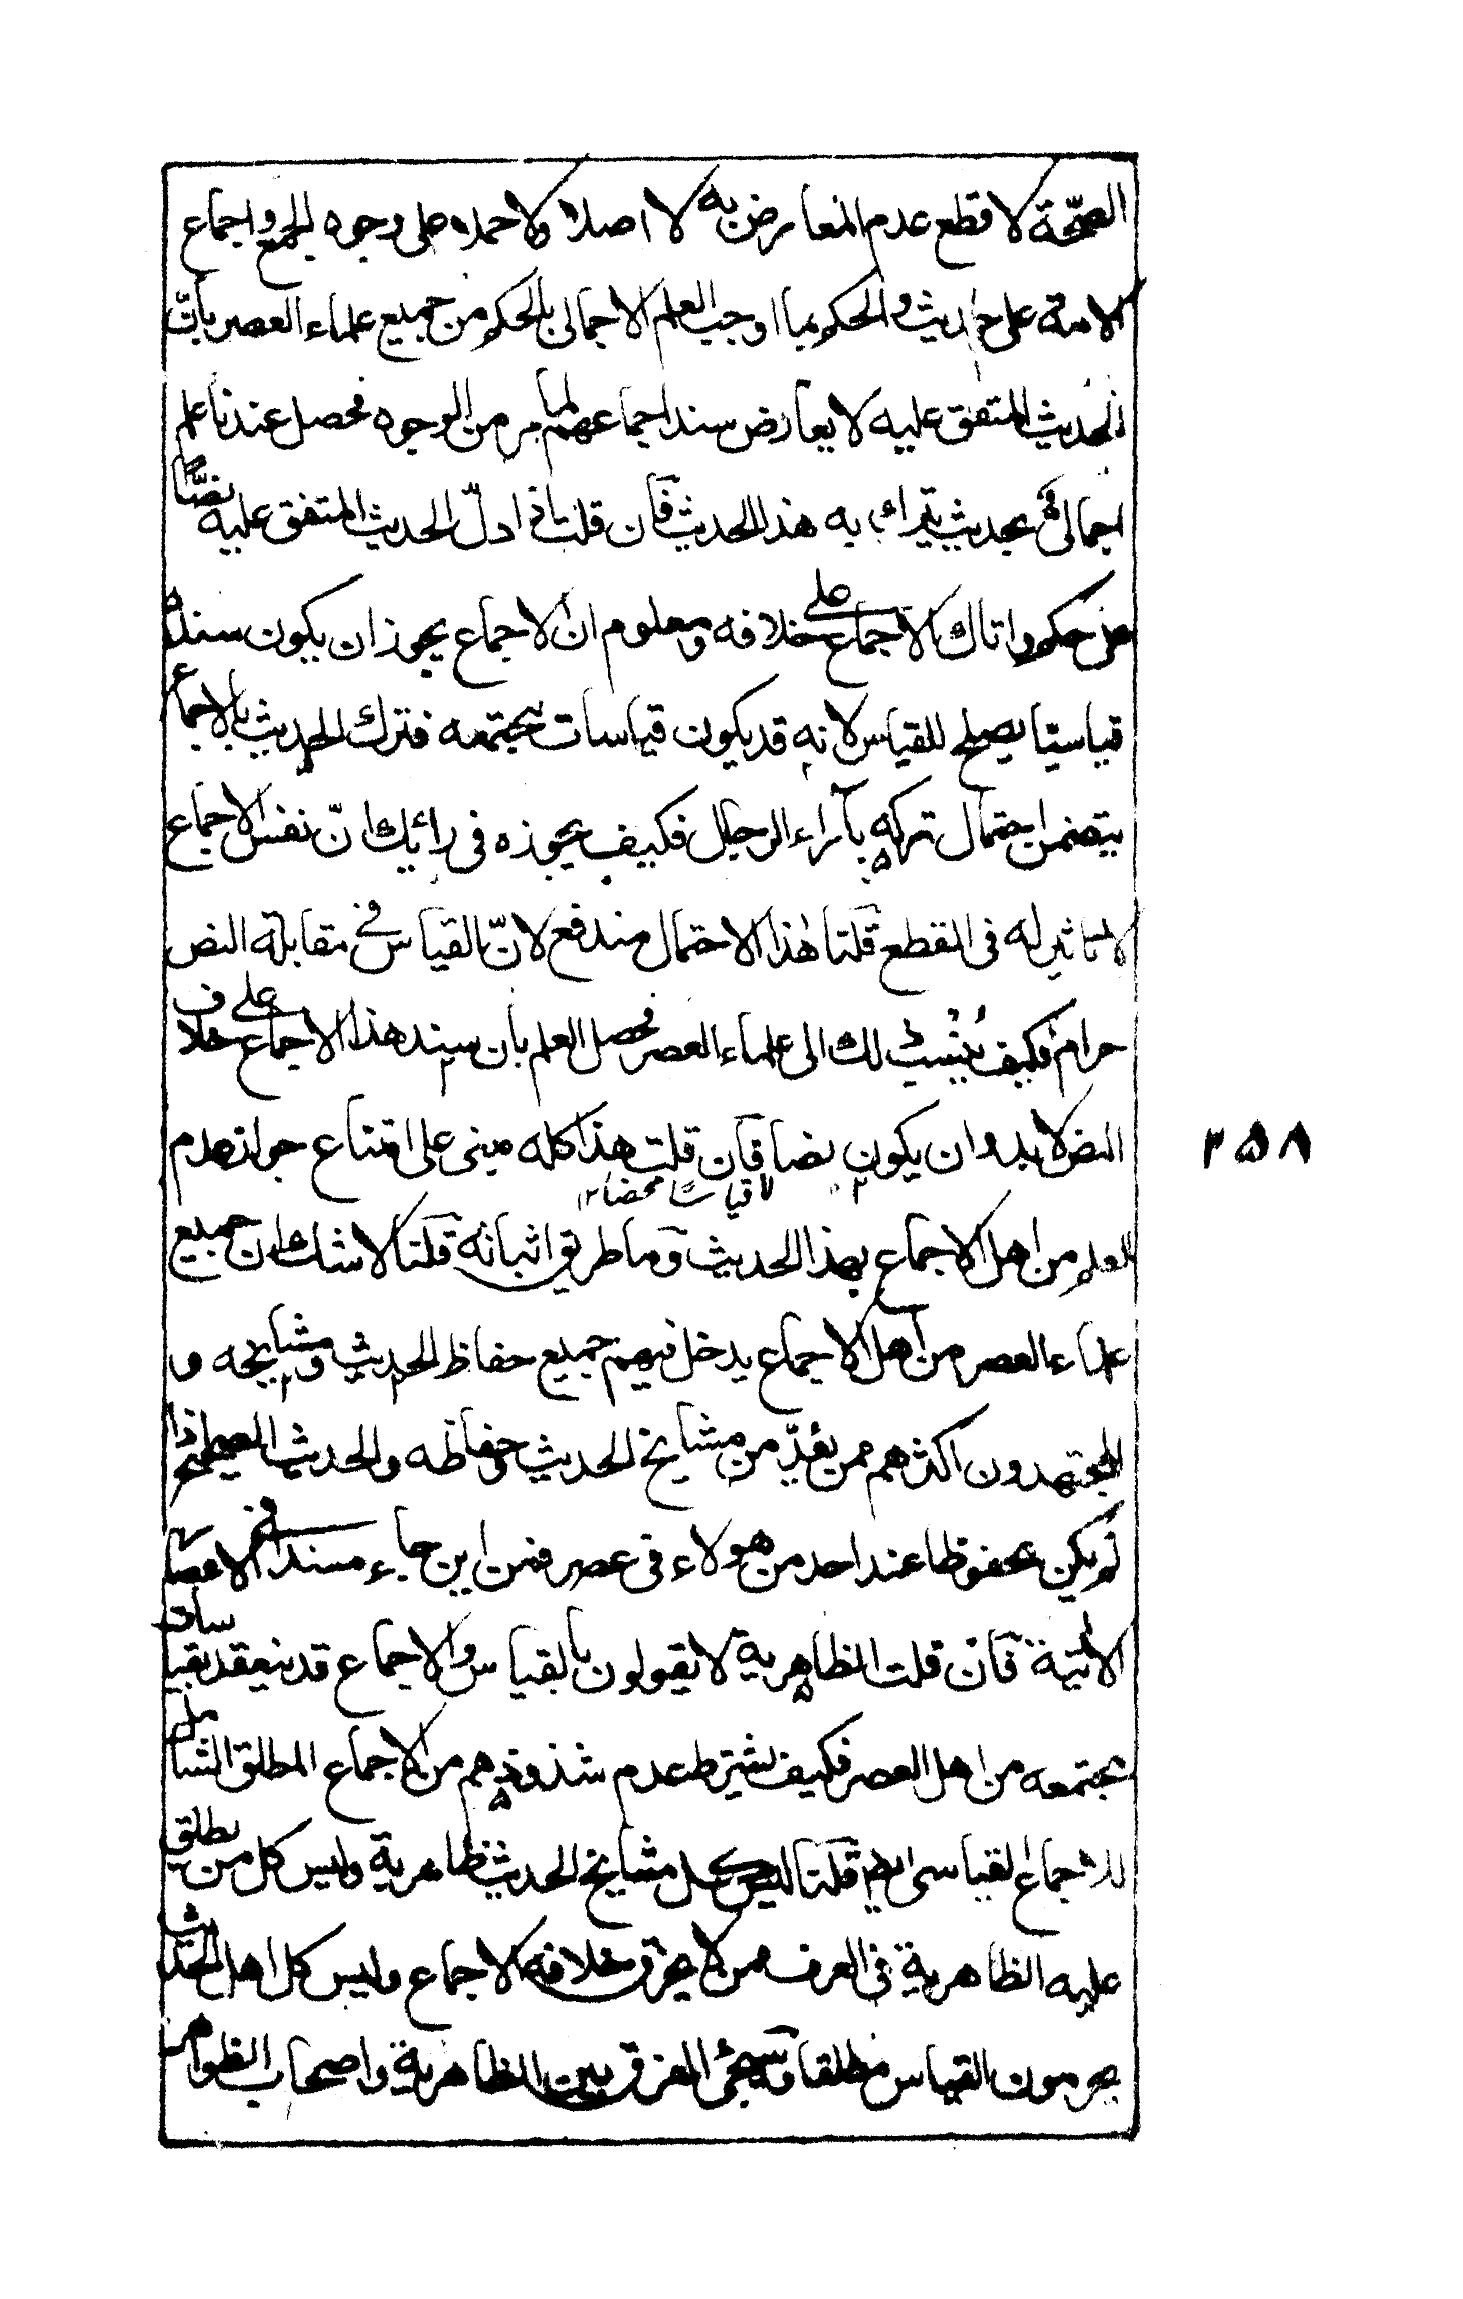 الصحة لا قطع عدم المعارض به لا اصلا ولا حمله على وجوه الجمع واجماع
الامة على حديث والحكم بما اوجب العلم الاجمالى بالحكم من جميع علماء العصر بأنّ
الحديث المتفق عليه لا يعارض سند اجماعهم لما مر من الوجوه فحصل عندنا علم
اجمالى بحديث يترك به هذا الحديث فآن قلت اذا دلّ الحديث المتفق عليه نصًّا
على حكم واتاك الاجماع على خلافه ومعلوم ان الاجماع يجوز ان يكون سنده
قياسيّا يصلح للقياس لانه قد يكون قياسات مجتمعه فترك الحديث بالاجماع
يتضمن احتمال تركه بآراء الرجال فكيف يجوزه فى رائيك انّ نفس الاجماع
لا تاثير له فى القطع قلتا هذا الاحتمال مندفع لانّ القياس فى مقابلة النص
حرام فكيف ينسب لك الى علماء العصر فحصل العلم بان سند هذا الاجماع على خلاف
النص لا بد وان يكون نصا فآن قلت هذا كله مبنى على امتناع جواز عدم
لا قياسًا محضا ١٢
العلم من اهل الاجماع بهذا الحديث وما طريق اثباته قلتا لا شك ان جميع
علماء العصر من اهل الاجماع يدخل فيهم جميع حفاظ الحديث ومشايخه و
المجتهدون اكثرهم ممن يعدّ من مشايخ الحديث وحفاظه والحديث الصحيح اذا
لم يكن محفوظا عند احد من هولاء فى عصر فمن اين جاء مسندا فى الاعصار
الأتية فآن قلت الظاهرية لا يقولون بالقياس والاجماع قد ينعقد بقياسات
مجتمعه من اهل العصر فكيف يشترط عدم شذوذهم من الاجماع المطلق الشامل
للاجماع القياسى قلتا ليس كل مشايخ الحديث ظاهرية وليس كل من يطلق
عليه الظاهرية فى العرف ممن لا يخرق خلافه الاجماع وليس كل اهل الحديث
يحرمون القياس مطلقا وسيجئ الفرق بين الظاهرية واصحاب الظواهر
٣٥٨